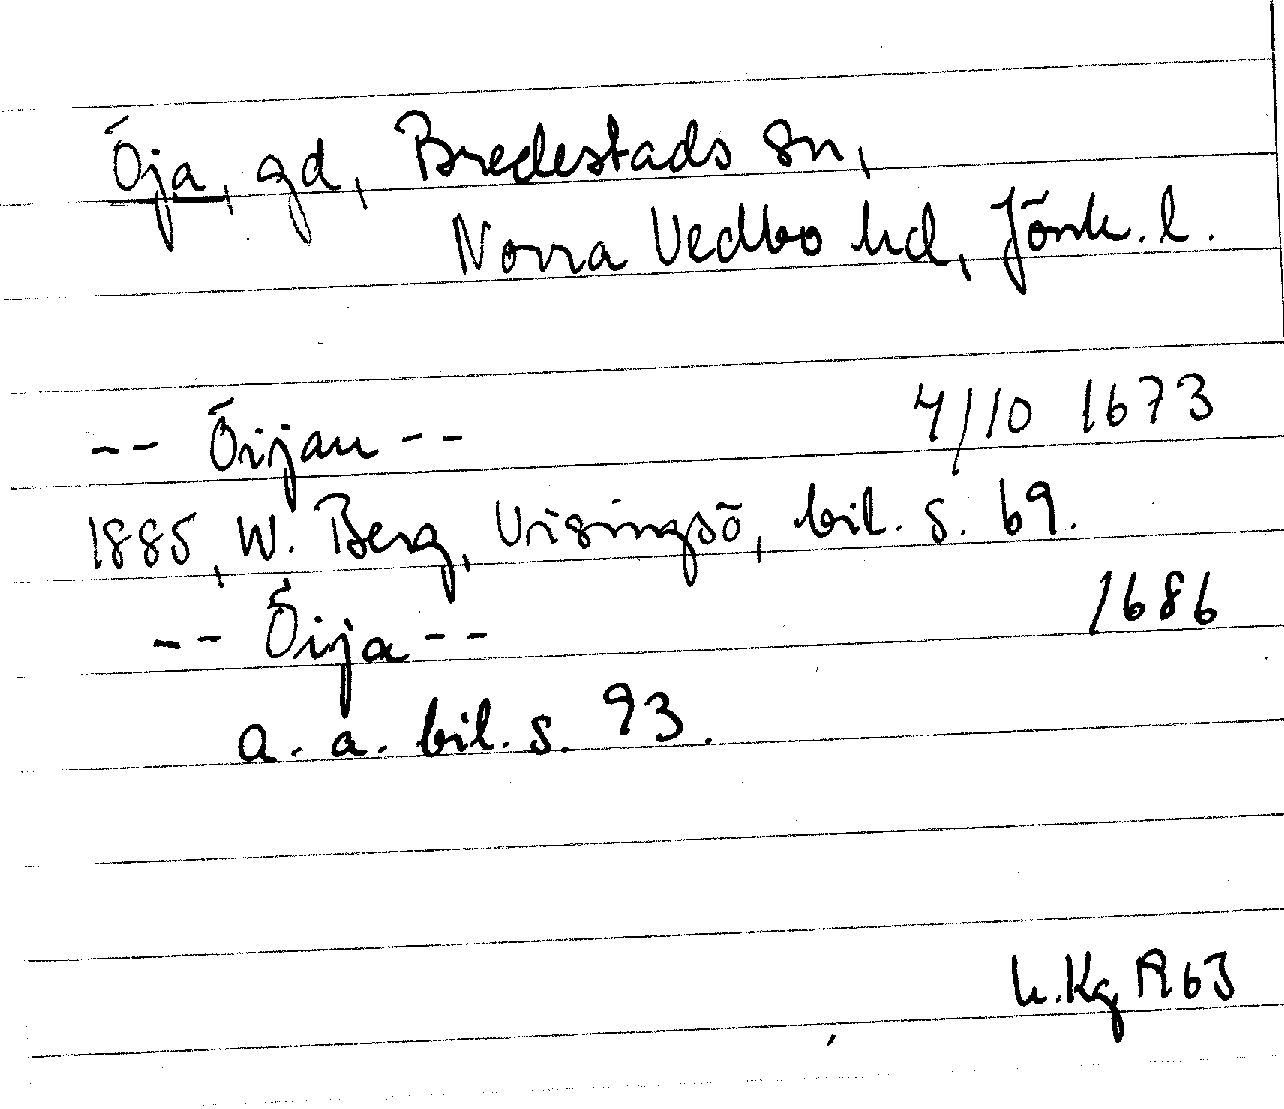 Öja, gd, Bredestads sn,
Norra Vedbo hd, Jönk. l.
-- Öijan -- 4/10 1673
1885, W. Berg, Visingsö, bil. s. 69.
-- Öija -- 1686
a. a. bil. s. 93.
h. Kg 1963